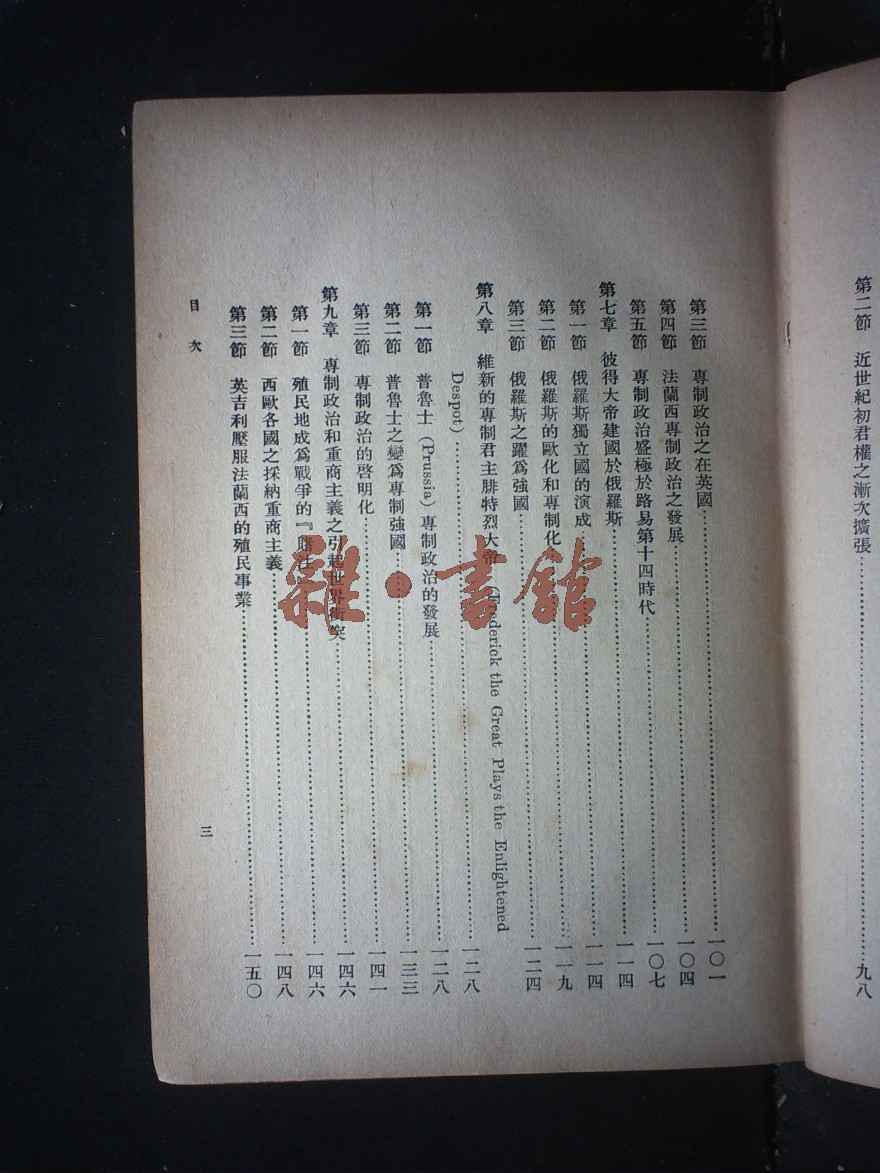 第二節 近世紀初君權之漸次擴張……九八
第三節 專制政治之在英國……一〇一
第四節 法蘭西專制政治之發展……一〇四
第五節 專制政治盛極於路易第十四時代……一〇七
第七章 彼得大帝建國於俄羅斯……一一四
第一節 俄羅斯獨立國的演成……一一四
第二節 俄羅斯的歐化和專制化……一一九
第三節 俄羅斯之躍爲強國……一二四
第八章 維新的專制君主腓特烈大帝 (Frederick the Great Plays the Enlightened
Despot)……一二八
第一節 普魯士 (Prussia) 專制政治的發展……一二八
第二節 普魯士之變爲專制強國……一三三
第三節 專制政治的啓明化……一四一
第九章 專制政治和重商主義之引起世界衝突……一四六
第一節 殖民地成爲戰爭的『賭注……一四六
第二節 西歐各國之採納重商主義……一四八
第三節 英吉利壓服法蘭西的殖民事業……一五〇
目次
三
雜·書館